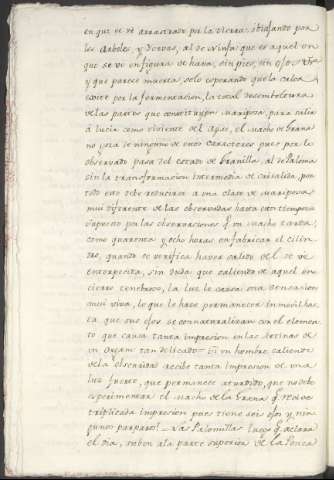 en que se ve arrastrado por la tierra: viajando por
los arboles y Yervas, al de ninfa: que es aquel en
que se ve en figura de hava, sin pies, sin ojos
y que parece muerta, solo esperando que la calor
excite por la formentacion, la total desemboltura
de las partes que constituyen mariposa, para salir
á lucir como viviente del Ayre, el Macho de Grana
no pasa se ninguno de estos caracteres pues por lo
observado pasa del estado de granilla, al de Paloma
sin la transformacion intermedia de crisalida, por
todo esto debe reducirse a una clase de mariposa
mui diferente de las observadas hasta estos tiempos
supuesto por las observaciones q.e un macho tarda,
como quarenta y ocho horas en fabricar el cilin
dro, quando se verifica haver salido de el se ve
entorpecido, sin duda que saliendo de aquel en
cierro tenebroso, la luz le causa una sensacion
mui viva, lo que le hace permanecer inmobil has
ta que sus ojos se connaturalizan con el elemen
to que causa tanta impresion en las retinas de
un organo tan delicado = si un hombre saliendo
de la obscuridad recibe tanta impresion de una
luz fuerte, que permanece aturdido, que no debe
experimentar el Macho de la Grana q.e recive
triplicada impresion pues tiene seis ojos y nin
gunos parpados! = La Palomilla luego q.e aclara
el dia, suben a la parte superior de la Penca